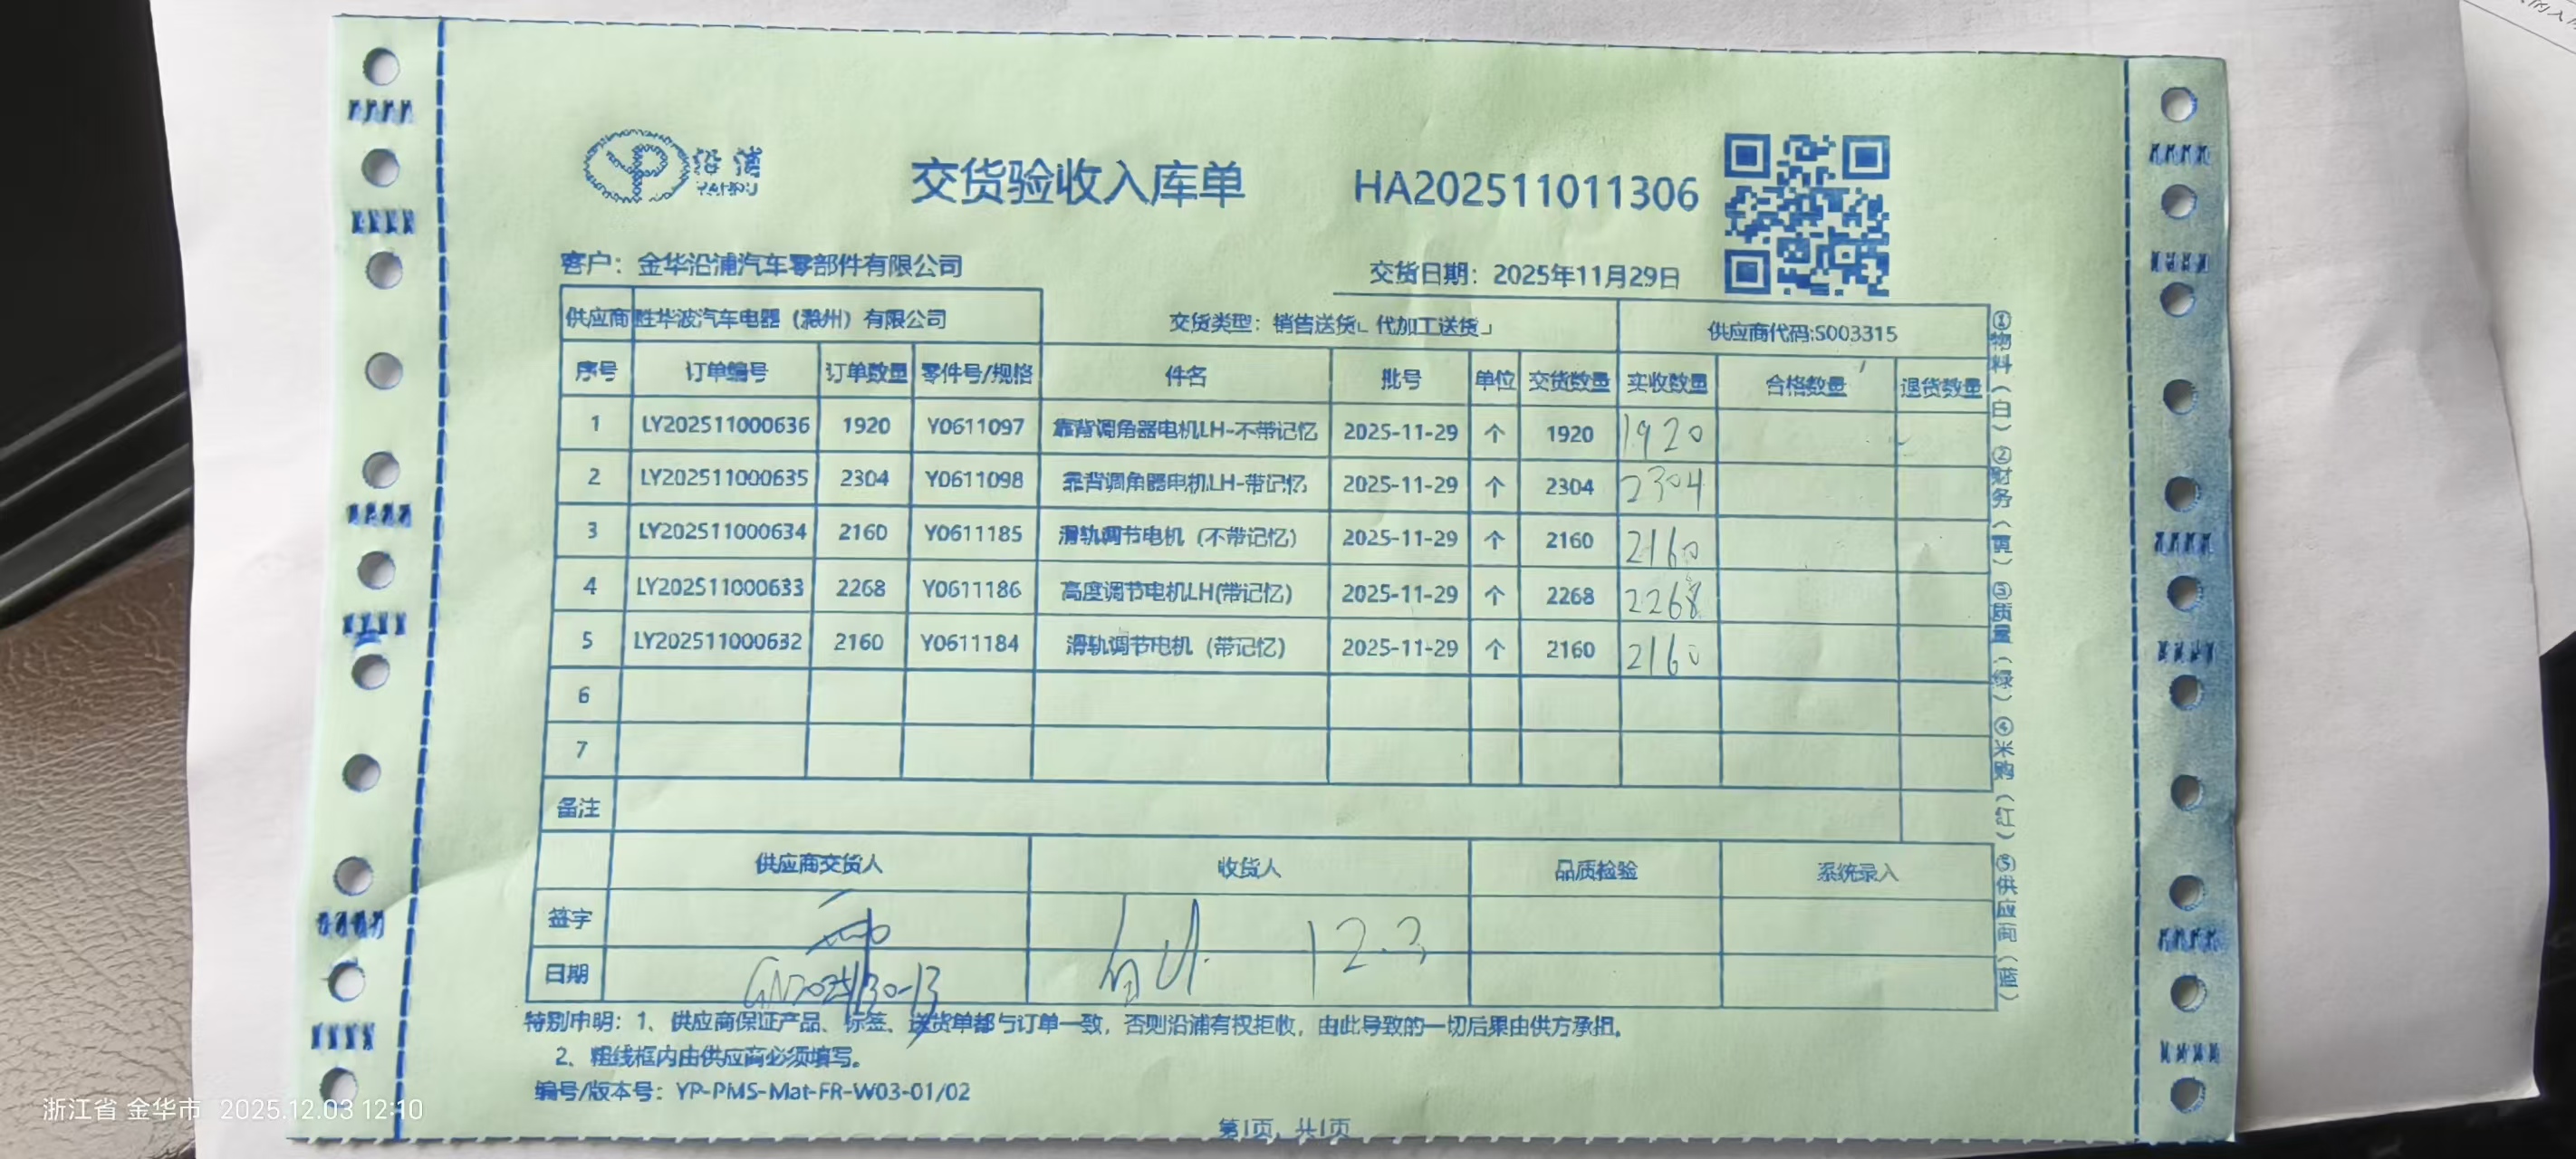 沿浦
YANPU
交货验收入库单
HA202511011306
客户：金华沿浦汽车零部件有限公司
交货日期：2025年11月29日
供应商 胜华波汽车电器（滁州）有限公司 交货类型：销售送货 代加工送货 供应商代码:S003315
序号 订单编号 订单数量 零件号/规格 件名 批号 单位 交货数量 实收数量 合格数量 退货数量
1 LY202511000636 1920 Y0611097 靠背调角器电机LH-不带记忆 2025-11-29 个 1920 1920
2 LY202511000635 2304 Y0611098 靠背调角器电机LH-带记忆 2025-11-29 个 2304 2304
3 LY202511000634 2160 Y0611185 滑轨调节电机（不带记忆） 2025-11-29 个 2160 2160
4 LY202511000633 2268 Y0611186 高度调节电机LH(带记忆) 2025-11-29 个 2268 2268
5 LY202511000632 2160 Y0611184 滑轨调节电机（带记忆） 2025-11-29 个 2160 2160
6
7
备注
供应商交货人 收货人 品质检验 系统录入
签字 12.3
日期
特别申明：1、供应商保证产品、标签、送货单都与订单一致，否则沿浦有权拒收，由此导致的一切后果由供方承担。
2、粗线框内由供应商必须填写。
编号/版本号：YP-PMS-Mat-FR-W03-01/02
第1页，共1页
①物料（白）②财务（黄）③质量（绿）④采购（红）⑤供应商（蓝）
浙江省 金华市 2025.12.03 12:10